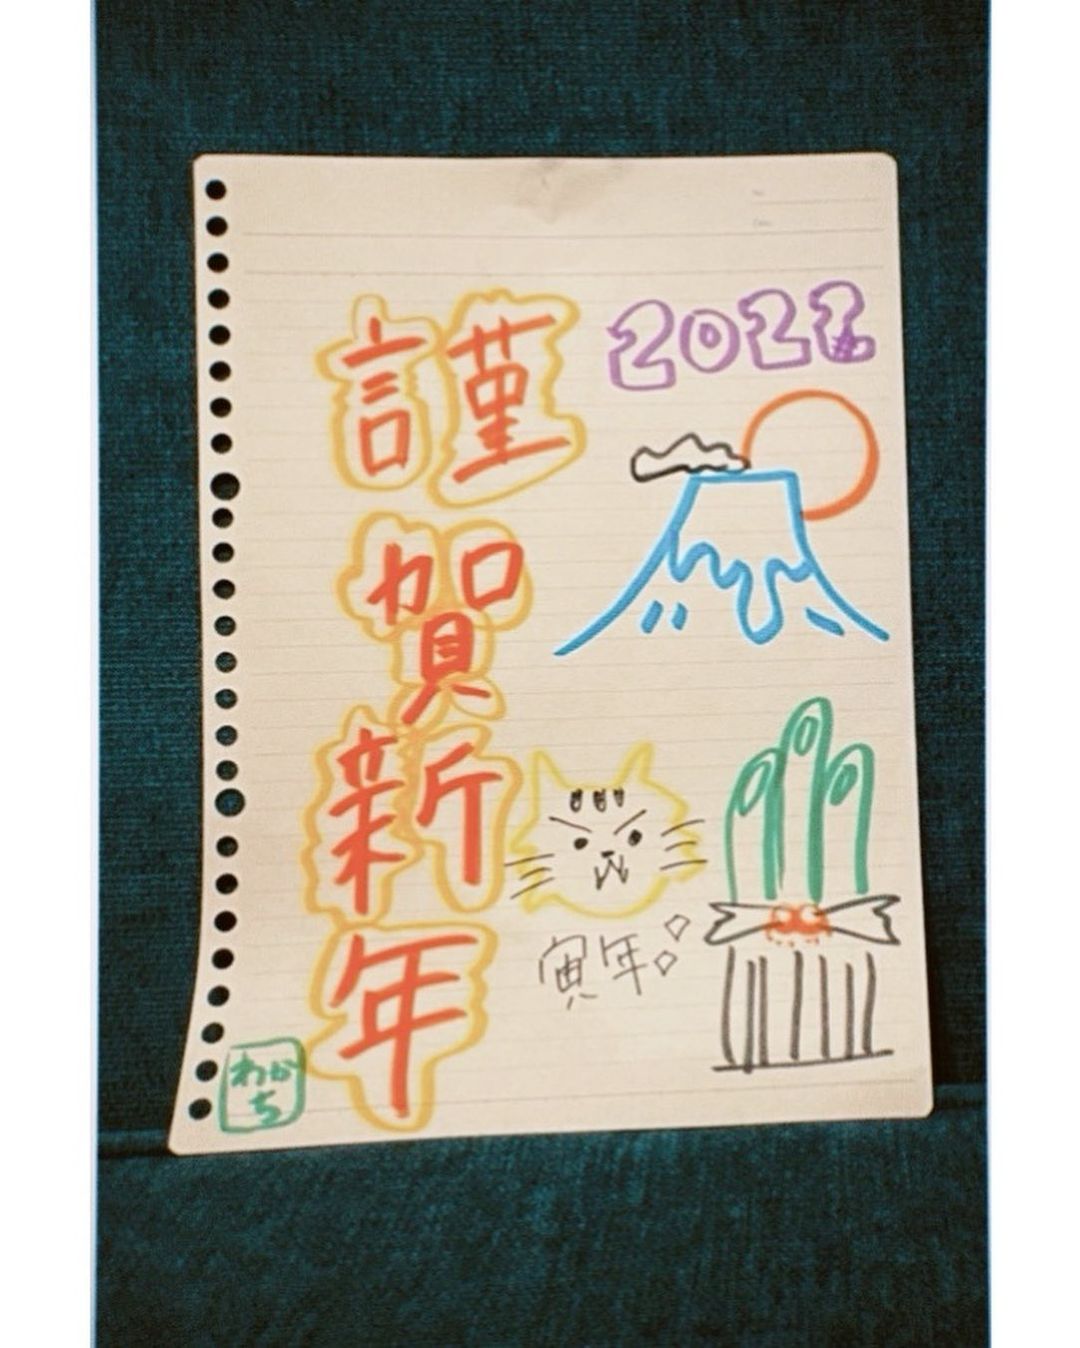 謹賀新年
2022
寅年
わかち